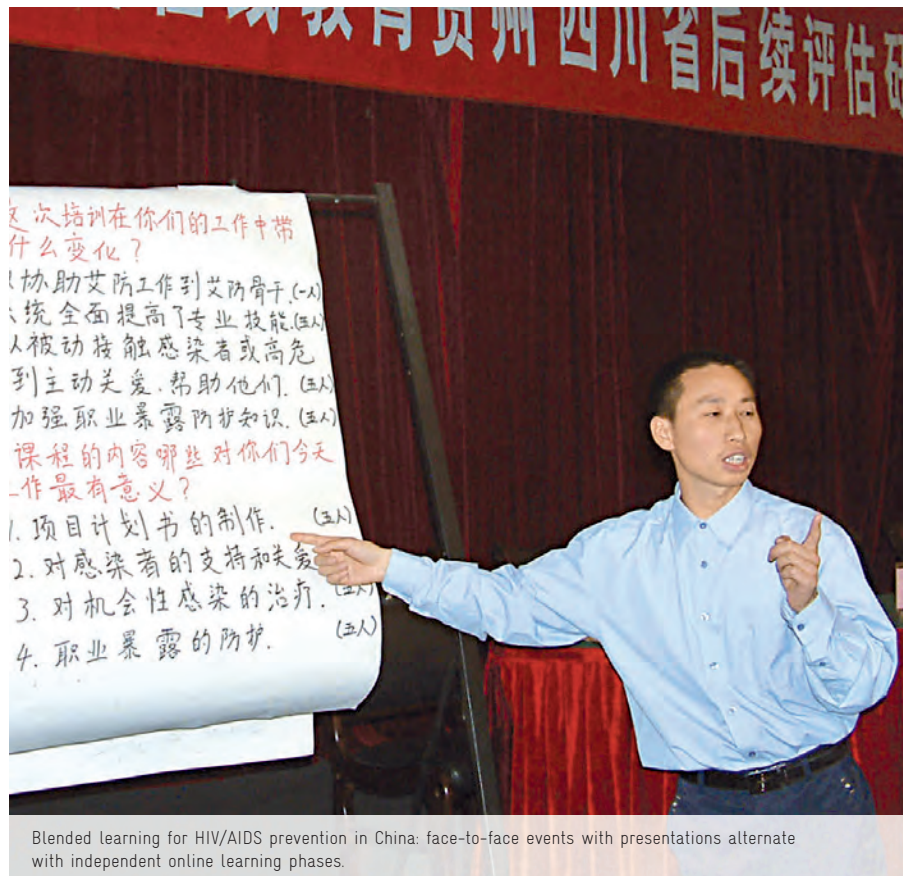 线教育贵州 四川省后续评估研
这次培训在你们的工作中带
什么变化？
协助艾防工作到艾防骨干.(一人)
统全面提高了专业技能.(五人)
从被动接触感染者或高危
到主动关爱.帮助他们.(五人)
加强职业暴露防护知识.(五人)
课程的内容哪些对你们今天
工作最有意义？
1. 项目计划书的制作. (五人)
2. 对感染者的支持和关爱
3. 对机会性感染的治疗. (五人)
4. 职业暴露的防护. (五人)
Blended learning for HIV/AIDS prevention in China: face-to-face events with presentations alternate
with independent online learning phases.